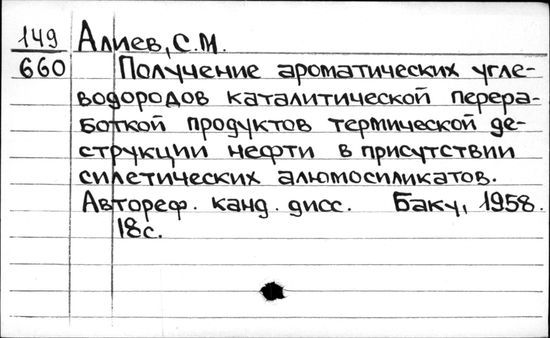 149 Алиев, С.М.
660 Получение ароматических угле-
водородов каталитической перера-
боткой продуктов термической де-
струкции нефти в присутствии
силетических алюмосиликатов.
Автореф. канд. дисс. Баку, 1958.
18с.